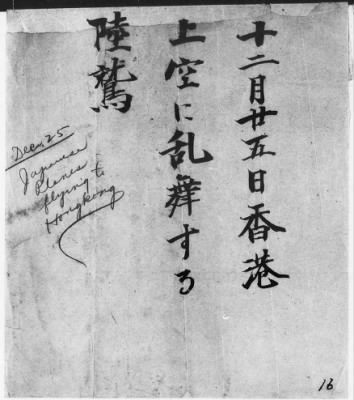 十二月廿五日香港
上空に乱舞する
陸鷲
Dec. 25
Japanese
Planes
flying to
Hongkong
16